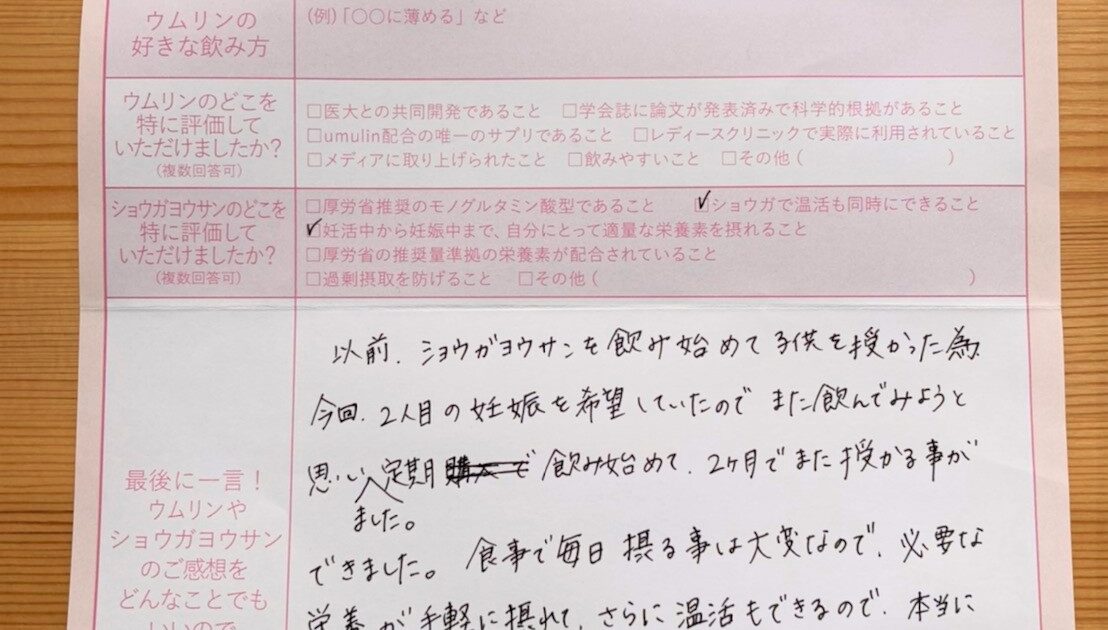 ウムリンの
好きな飲み方
(例)「〇〇に薄める」など
ウムリンのどこを
特に評価して
いただけましたか?
(複数回答可)
□医大との共同開発であること □学会誌に論文が発表済みで科学的根拠があること
□umulin配合の唯一のサプリであること □レディースクリニックで実際に利用されていること
□メディアに取り上げられたこと □飲みやすいこと □その他( )
ショウガヨウサンのどこを
特に評価して
いただけましたか?
(複数回答可)
□厚労省推奨のモノグルタミン酸型であること ☑ショウガで温活も同時にできること
☑妊活中から妊娠中まで、自分にとって適量な栄養素を摂れること
□厚労省の推奨量準拠の栄養素が配合されていること
□過剰摂取を防げること □その他( )
最後に一言!
ウムリンや
ショウガヨウサン
のご感想を
どんなことでも
いいので
以前、ショウガヨウサンを飲み始めて子供を授かった為
今回、2人目の妊娠を希望していたのでまた飲んでみようと
思い 定期 購入で 飲み始めて、2ヶ月でまた授かる事が
ました。
できました。 食事で毎日摂る事は大変なので、必要な
栄養が手軽に摂れて、さらに温活もできるので、本当に